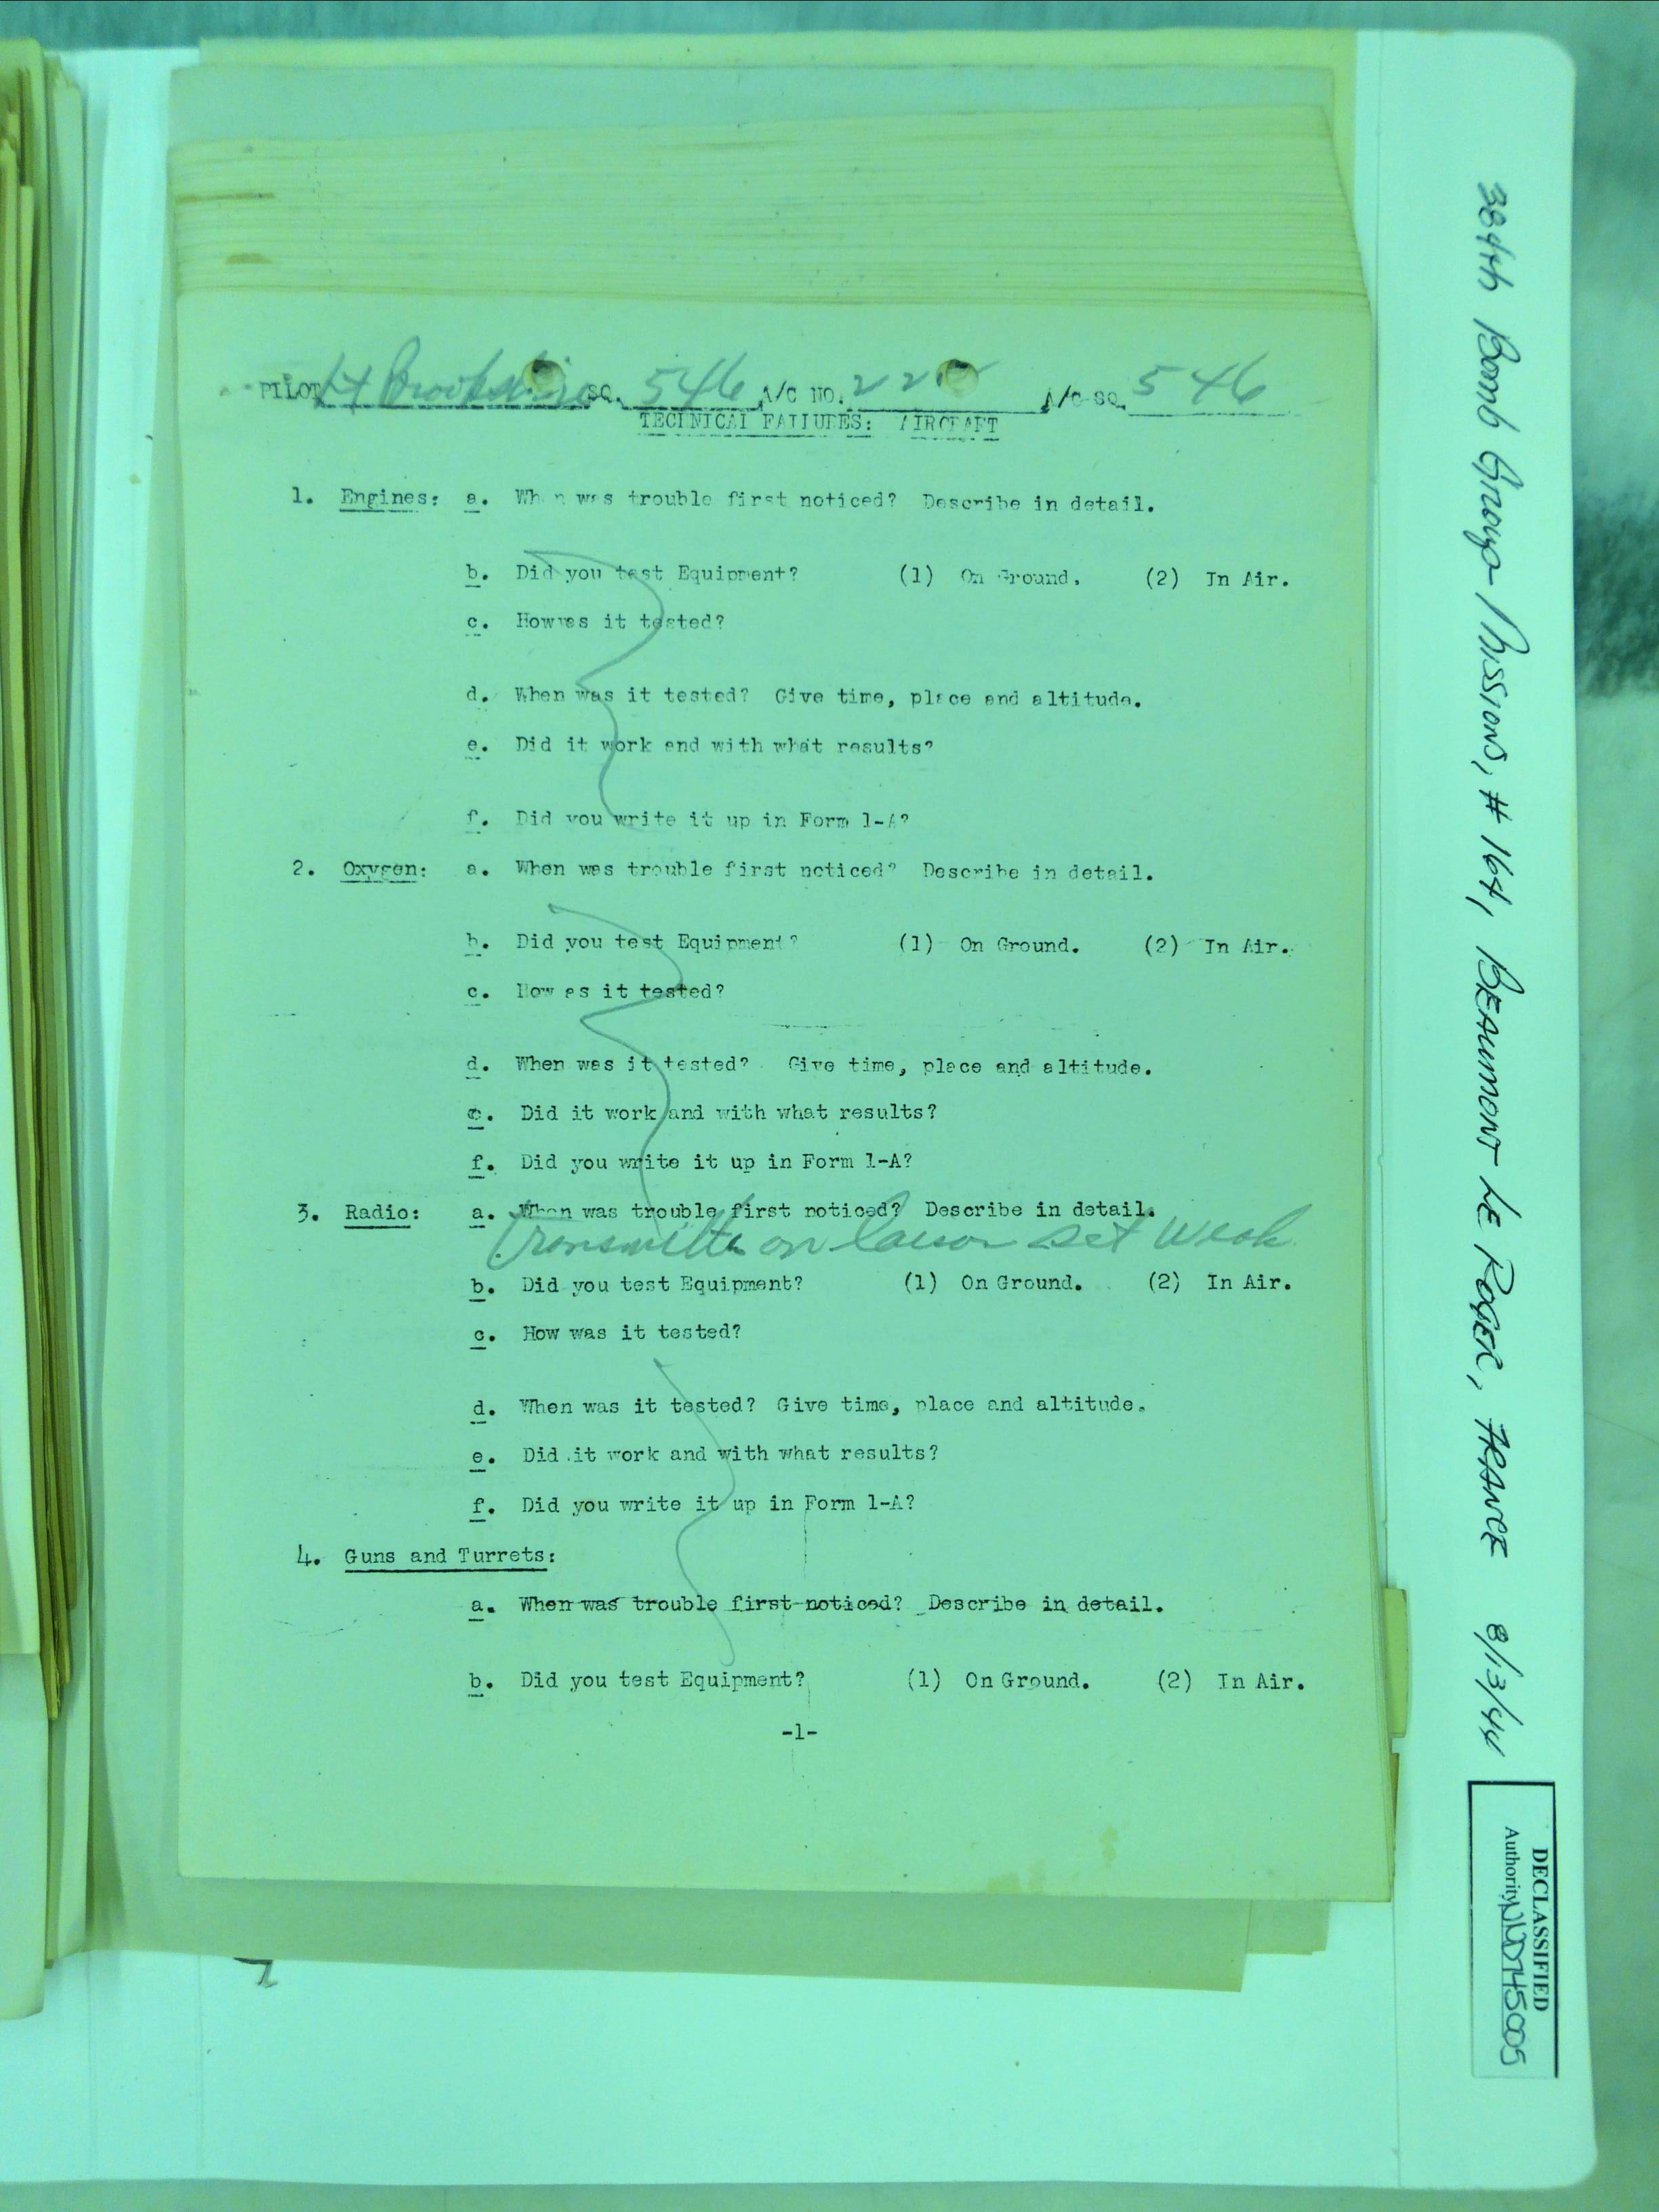 PILOT Lt SQ. 546 A/C NO. 22 A/C SQ. 546
TECHNICAL FAILURES: AIRCRAFT
1. Engines: a. When was trouble first noticed? Describe in detail.
b. Did you test Equipment? (1) On Ground. (2) In Air.
c. How was it tested?
d. When was it tested? Give time, place and altitude.
e. Did it work and with what results?
f. Did you write it up in Form 1-A?
2. Oxygen: a. When was trouble first noticed? Describe in detail.
b. Did you test Equipment? (1) On Ground. (2) In Air.
c. How as it tested?
d. When was it tested? Give time, place and altitude.
e. Did it work and with what results?
f. Did you write it up in Form 1-A?
3. Radio: a. When was trouble first noticed? Describe in detail.
on set weak
b. Did you test Equipment? (1) On Ground. (2) In Air.
c. How was it tested?
d. When was it tested? Give time, place and altitude.
e. Did it work and with what results?
f. Did you write it up in Form 1-A?
4. Guns and Turrets:
a. When was trouble first noticed? Describe in detail.
b. Did you test Equipment? (1) On Ground. (2) In Air.
-1-
384th Bomb Group Mission, # 164, BEAUMONT LE ROGER, FRANCE 8/13/44
DECLASSIFIED
Authority NND745005